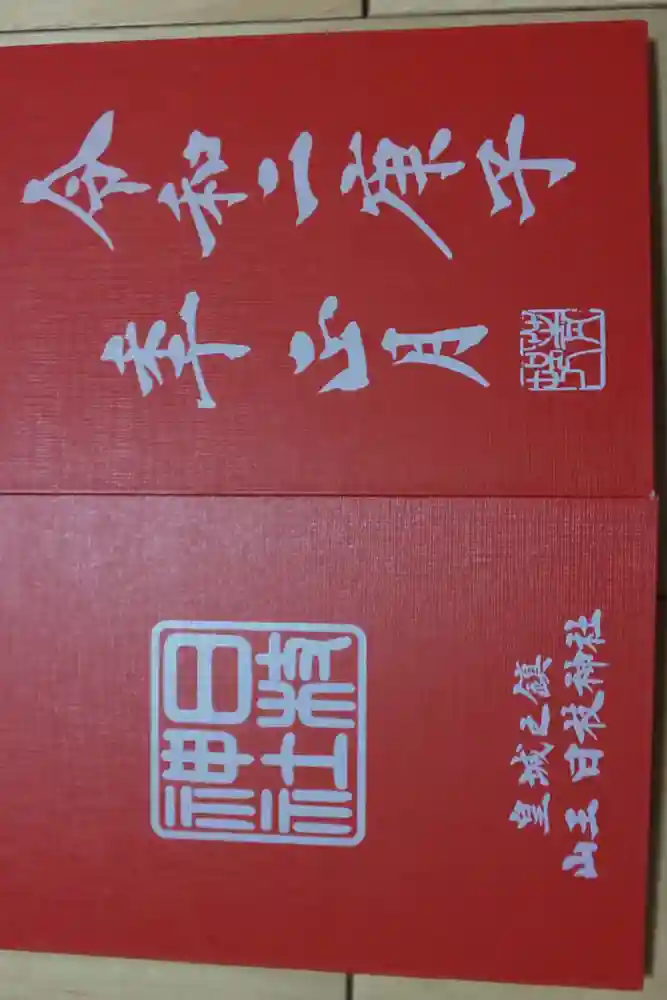 令和二庚子
秊正月
日枝
神社
皇城之鎮
山王 日枝神社